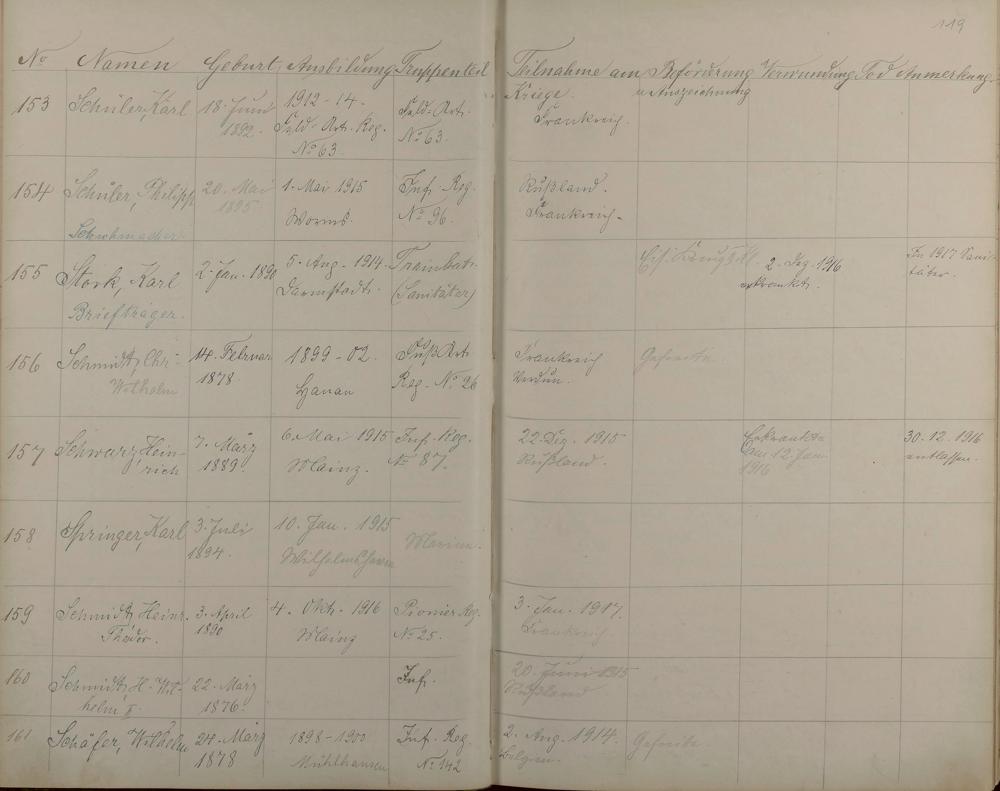 119
No Namen Geburt Ausbildung Truppenteil Teilnahme am Beförderung Verwundung Tod Anmerkung.
Kriege. u Auszeichnung
153 Schüler, Karl 18. Juni 1912-14. Feld-Art. Frankreich.
1892. Feld-Art. Reg. No 63.
No 63.
154 Schüler, Philipp 20. Mai 1. Mai 1915 Inf. Reg. Rußland.
1895. Worms. No 96. Frankreich-
Schuhmacher.
155 Stork, Karl 2. Jan. 1890 5. Aug. 1914 Trainbat. 2. Dez. 1916 In 1917 Sani-
Darmstadt. (Sanitäter) erkrankt. täter.
Briefträger.
156 Schmidt, Chr- 14. Februar 1899-02. Fuß Art. Frankreich Gefreite.
Wilhelm 1878. Hanau Reg. No 26 Verdun.
157 Schwarz, Hein- 7. März 6. Mai 1915 Inf. Reg. 22. Dez. 1915 Erkrankte 30.12.1916
rich 1889. Mainz. No 87. Rußland. am 12. entlassen.
1916
158 Springer, Karl 3. Juli 10. Jan. 1915 Marine.
1894. Wilhelmshaven
159 Schmidt, Heinr. 3. April 4. Okt. 1916 Pionier Reg. 3. Jan. 1917.
Theodor. 1890 Mainz No 25. Frankreich.
160 Schmidt, H. Wil- 22. März Inf. 20. Juni 1915
helm II. 1876. Rußland
161 Schäfer, Wilhelm 24. März 1898-1900 Inf. Reg. 2. Aug. 1914. Gefreite.
1878 Mühlhausen No 142 Belgien.